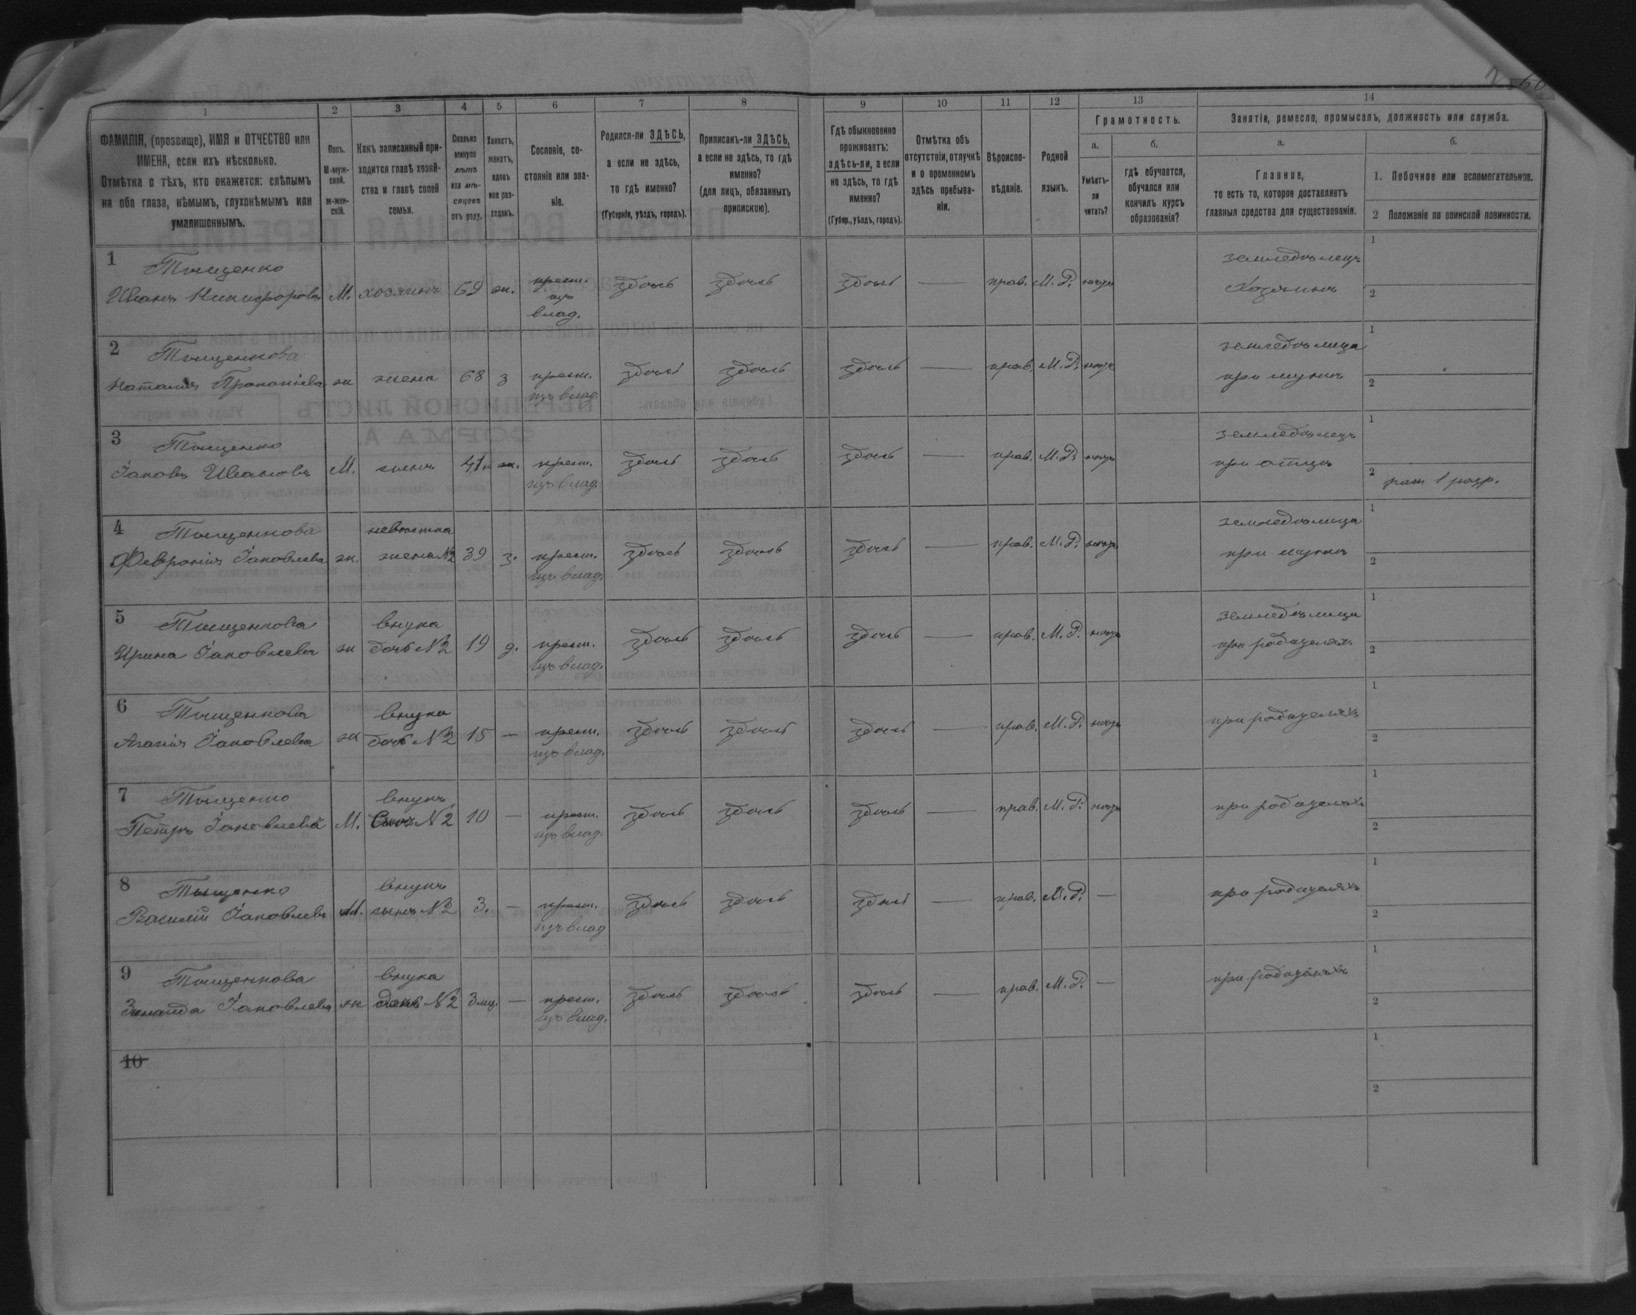 1
2
3
4
5
6
7
8
9
10
11
12
13
14
ФАМИЛІЯ, (прозвище), ИМЯ и ОТЧЕСТВО или
ИМЕНА, если ихъ нѣсколько.
Отмѣтка о тѣхъ, кто окажется: слѣпымъ
на оба глаза, нѣмымъ, глухонѣмымъ или
умалишеннымъ.
Полъ.
М-муж-
ской.
ж-жен-
скій.
Какъ записанный при-
ходится главѣ хозяй-
ства и главѣ своей
семьи.
Сколько
минуло
лѣтъ
или мѣ-
сяцевъ
отъ роду.
Холостъ,
женатъ,
вдовъ
или раз-
веденъ.
Сословіе, со-
стояніе или зва-
ніе.
Родился-ли ЗДѢСЬ,
а если не здѣсь,
то гдѣ именно?
(Губернія, уѣздъ, городъ).
Приписанъ-ли ЗДѢСЬ,
а если не здѣсь, то гдѣ
именно?
(для лицъ, обязанныхъ
припискою).
Гдѣ обыкновенно
проживаетъ:
здѣсь-ли, а если
не здѣсь, то гдѣ
именно?
(Губер., уѣздъ, городъ).
Отмѣтка объ
отсутствіи, отлучкѣ
и о временномъ
здѣсь пребыва-
ніи.
Вѣроиспо-
вѣданіе.
Родной
языкъ.
Грамотность.
а.
Умѣетъ-
ли
читать?
б.
гдѣ обучается,
обучался или
кончилъ курсъ
образованія?
Занятіе, ремесло, промыселъ, должность или служба.
а.
Главное,
то есть то, которое доставляетъ
главныя средства для существованія.
б.
1. Побочное или вспомогательное.
2 Положеніе по воинской повинности.
1 Тыщенко земледѣлецъ 1
Иванъ Никифоровъ М. хозяинъ 69 ж. крест. здѣсь здѣсь здѣсь — прав. М.Р. нѣтъ Хозяинъ 2
изъ
влад.
2 Тыщенкова земледѣлица 1
Наталія Прокопіева ж жена 68 з крест. здѣсь здѣсь здѣсь — прав. М.Р. нѣтъ при мужѣ 2
изъ влад.
3 Тыщенко земледѣлецъ 1
Іаковъ Ивановъ М. сынъ 41 ж. крест. здѣсь здѣсь здѣсь — прав. М.Р. нѣтъ при отцѣ 2 рат 1 разр.
изъ влад.
4 Тыщенкова невѣстка земледѣлица 1
Февронія Іаковлева ж. жена №2 39 з. крест. здѣсь здѣсь здѣсь — прав. М.Р. нѣтъ при мужѣ 2
изъ влад.
5 Тыщенкова внука земледѣлица 1
Ирина Іаковлева ж дочь №2 19 д. крест. здѣсь здѣсь здѣсь — прав. М.Р. нѣтъ при родителяхъ 2
изъ влад.
6 Тыщенкова внука 1
Агапія Іаковлева ж дочь №2 15 — крест. здѣсь здѣсь здѣсь — прав. М.Р. нѣтъ при родителяхъ 2
изъ влад.
7 Тыщенко внукъ 1
Петръ Іаковлевъ М. Сынъ №2 10 — крест. здѣсь здѣсь здѣсь — прав. М.Р. нѣтъ при родителяхъ 2
изъ влад.
8 Тыщенко внукъ 1
Василій Іаковлевъ М. сынъ №2 3. — крест. здѣсь здѣсь здѣсь — прав. М.Р. — при родителяхъ 2
изъ влад
9 Тыщенкова внука 1
Зинаида Іаковлева ж дочь №2 3 мц. — крест. здѣсь здѣсь здѣсь — прав. М.Р. — при родителяхъ 2
изъ влад.
10 1
2